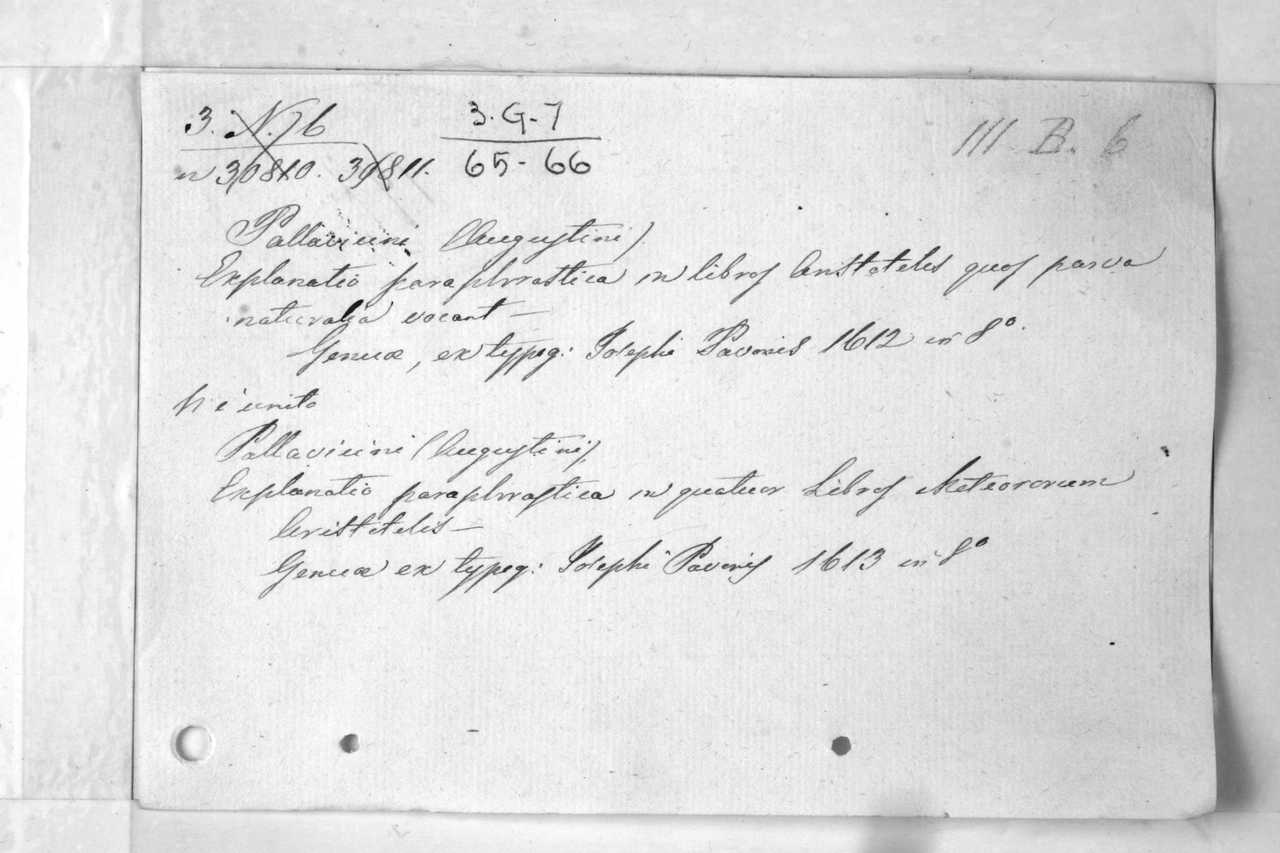 3. N. 76 3. G. 7 III B. 6
n 30810. 30811. 65-66
Pallavicini (Augustini)
Explanatio paraphrastica in libros Aristotelis quos parva
naturalia vocant —
Genuæ, ex typog: Josephi Pavonis 1612 in 8º.
Vi è unito
Pallavicini (Augustini)
Explanatio paraphrastica in quatuor Libros Meteororum
Aristotelis —
Genuæ ex typog: Josephi Pavonis 1613 in 8º